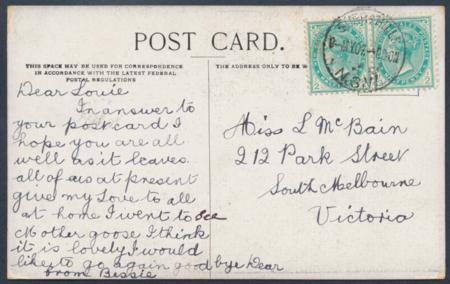 POST CARD.
THIS SPACE MAY BE USED FOR CORRESPONDENCE
IN ACCORDANCE WITH THE LATEST FEDERAL
POSTAL REGULATIONS
THE ADDRESS ONLY TO BE
Dear Louie
In answer to
your postcard I
hope you are all
well as it leaves
all of us at present
give my Love to all
at home I went to see
Mother goose I think
it is lovely I would
like to go again good bye Dear
from Bessie
Miss L McBain
212 Park Street
South Melbourne
Victoria